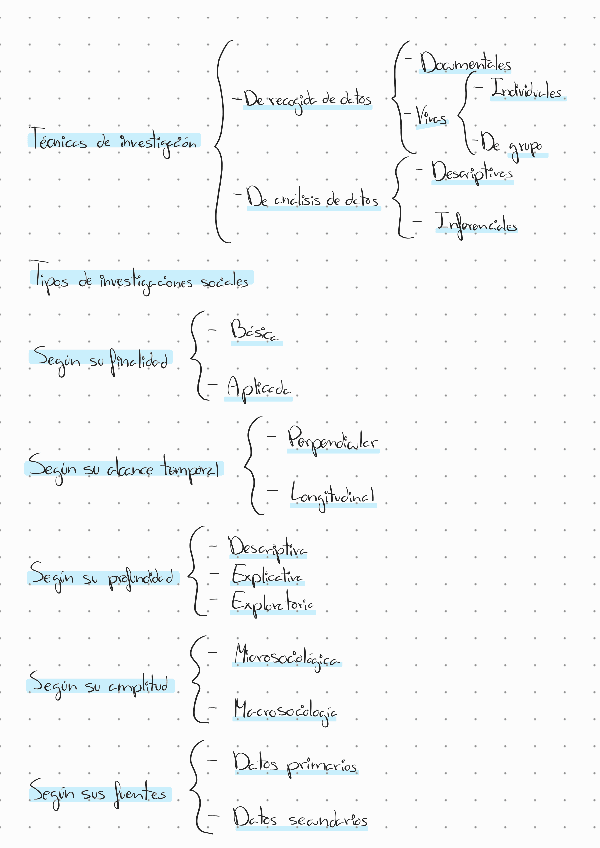 Técnicas de investigación
- De recogida de datos
- Documentales
- Vivas
- Individuales
- De grupo
- De análisis de datos
- Descriptivas
- Inferenciales
Tipos de investigaciones sociales
Según su finalidad
- Básica
- Aplicada
Según su alcance temporal
- Perpendicular
- Longitudinal
Según su profundidad
- Descriptiva
- Explicativa
- Exploratoria
Según su amplitud
- Microsociológica
- Macrosociología
Según sus fuentes
- Datos primarios
- Datos secundarios